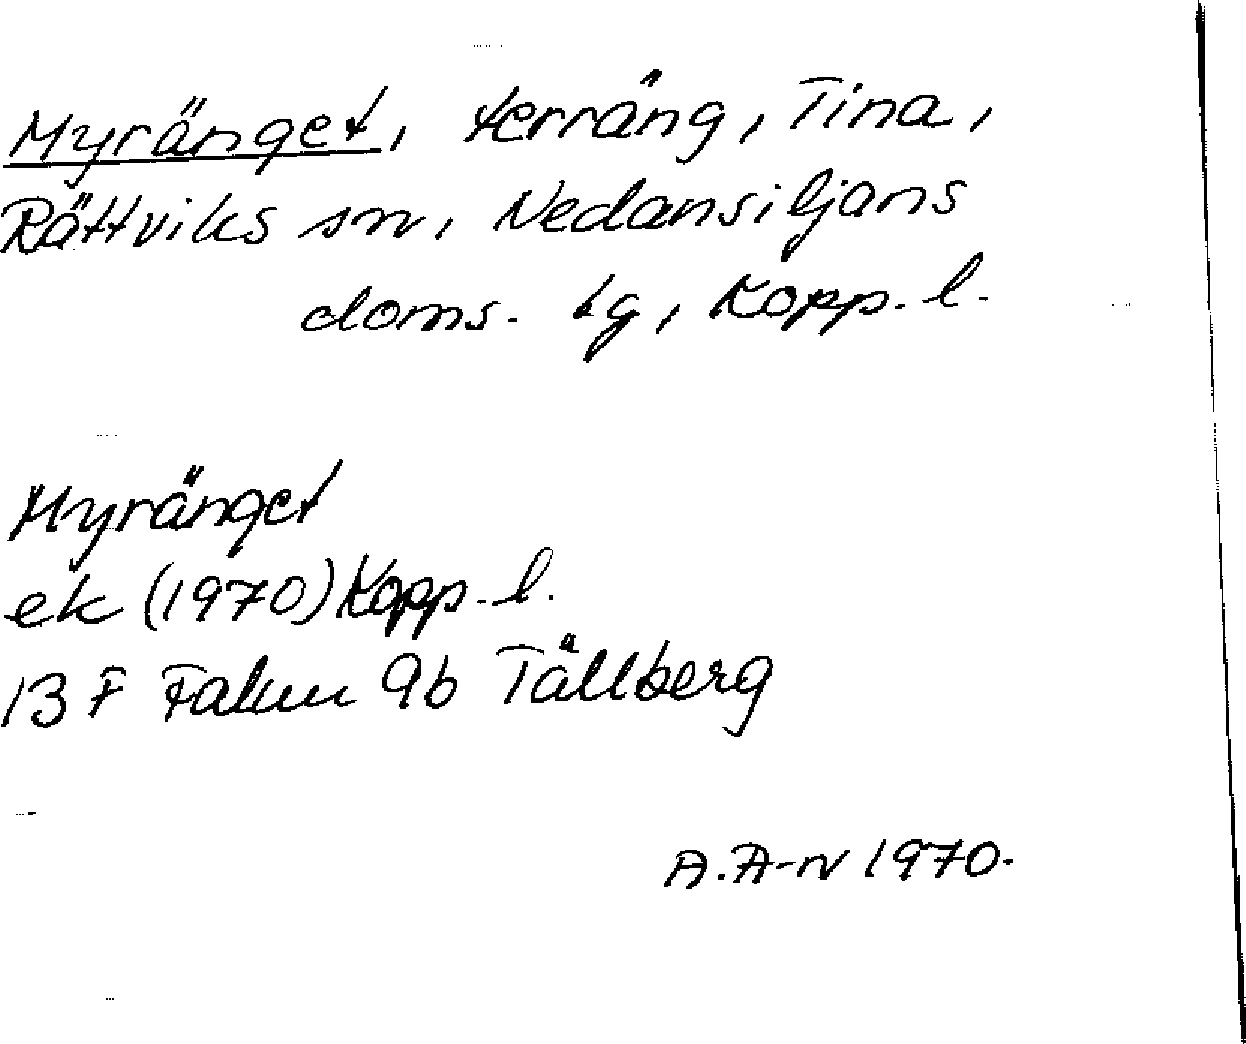 Myränget, terräng, Tina,
Rättviks sn, Nedansiljans
doms. tg, Kopp. l.
Myränget
ek (1970) Kopp. l.
13 F Falun 9b Tällberg
A. A-n 1970.